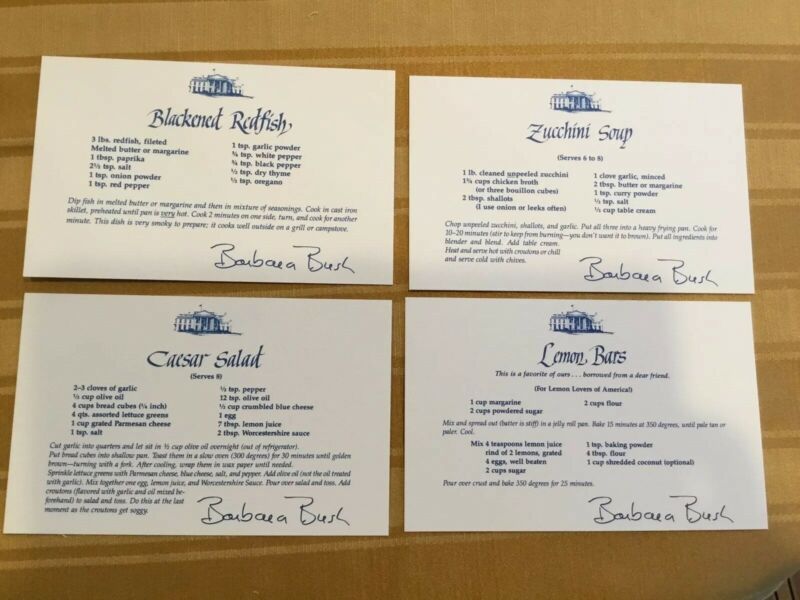 Blackened Redfish
3 lbs. redfish, fileted
Melted butter or margarine
1 tbsp. paprika
2½ tsp. salt
1 tsp. onion powder
1 tsp. red pepper
1 tsp. garlic powder
¾ tsp. white pepper
¾ tsp. black pepper
½ tsp. dry thyme
½ tsp. oregano
Dip fish in melted butter or margarine and then in mixture of seasonings. Cook in cast iron
skillet, preheated until pan is very hot. Cook 2 minutes on one side, turn, and cook for another
minute. This dish is very smoky to prepare; it cooks well outside on a grill or campstove.
Barbara Bush
Zucchini Soup
(Serves 6 to 8)
1 lb. cleaned unpeeled zucchini
1¾ cups chicken broth
(or three bouillon cubes)
2 tbsp. shallots
(I use onion or leeks often)
1 clove garlic, minced
2 tbsp. butter or margarine
1 tsp. curry powder
½ tsp. salt
½ cup table cream
Chop unpeeled zucchini, shallots, and garlic. Put all three into a heavy frying pan. Cook for
10–20 minutes (stir to keep from burning—you don't want it to brown). Put all ingredients into
blender and blend. Add table cream.
Heat and serve hot with croutons or chill
and serve cold with chives.
Barbara Bush
Caesar Salad
(Serves 8)
2–3 cloves of garlic
½ cup olive oil
4 cups bread cubes (¾ inch)
4 qts. assorted lettuce greens
1 cup grated Parmesan cheese
1 tsp. salt
½ tsp. pepper
12 tsp. olive oil
½ cup crumbled blue cheese
1 egg
7 tbsp. lemon juice
2 tbsp. Worcestershire sauce
Cut garlic into quarters and let sit in ½ cup olive oil overnight (out of refrigerator).
Put bread cubes into shallow pan. Toast them in a slow oven (300 degrees) for 30 minutes until golden
brown—turning with a fork. After cooling, wrap them in wax paper until needed.
Sprinkle lettuce greens with Parmesan cheese, blue cheese, salt, and pepper. Add olive oil (not the oil treated
with garlic). Mix together one egg, lemon juice, and Worcestershire Sauce. Pour over salad and toss. Add
croutons (flavored with garlic and oil mixed be-
forehand) to salad and toss. Do this at the last
moment as the croutons get soggy.
Barbara Bush
Lemon Bars
This is a favorite of ours . . . borrowed from a dear friend.
(For Lemon Lovers of America!)
1 cup margarine
2 cups powdered sugar
2 cups flour
Mix and spread out (butter is stiff) in a jelly roll pan. Bake 15 minutes at 350 degrees, until pale tan or
paler. Cool.
Mix 4 teaspoons lemon juice
rind of 2 lemons, grated
4 eggs, well beaten
2 cups sugar
1 tsp. baking powder
4 tbsp. flour
1 cup shredded coconut (optional)
Pour over crust and bake 350 degrees for 25 minutes.
Barbara Bush